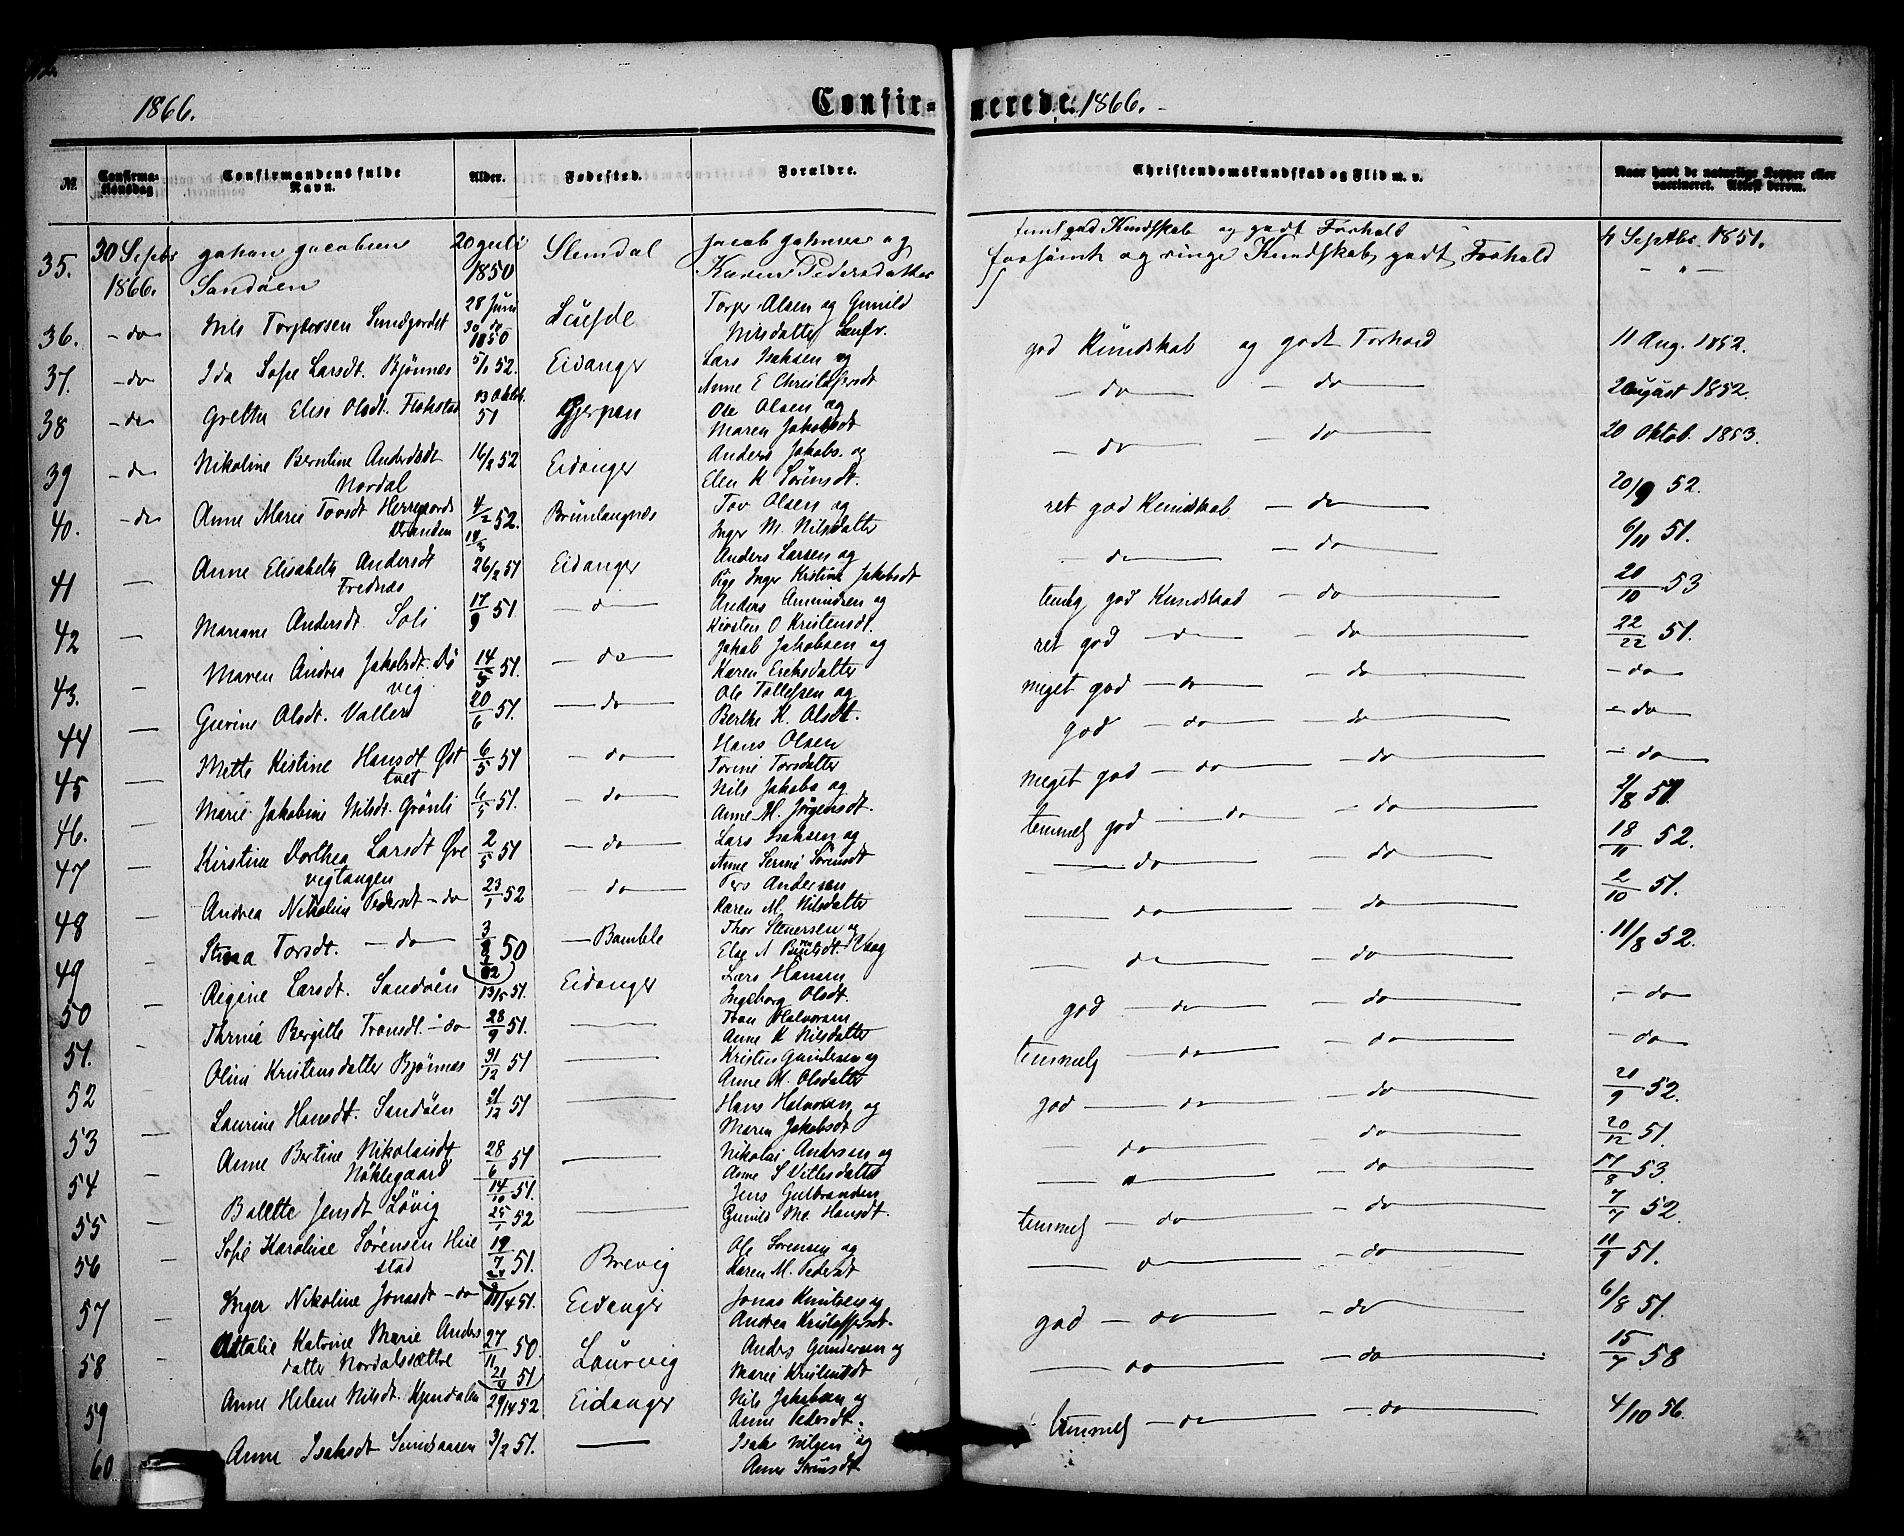 1866. Confir- merede. 1866.
№. Confirma-tionsdag Confirmandens fulde Navn. Alder. Fødested. Forældre. Christendomskundskab og Flid m. v. Naar havt de naturlige Kopper eller vaccineret. Attest derom.
35. 30 Septbr 1866. Johan Jacobsen Sandøen 20 Juli 1850 Slemdal Jacob Johnsen og Karen Pedersdatter
god Kundskab og godt Forhold
og ringe Kundskab, godt Forhold Septbr. 1851.
36. - do Nils Torjersen 28 Juni 1850 Torger Olsen og Gunild Nilsdatter god Kundskab og godt Forhold 11 Aug. 1852.
37. - do Ida Sofie Larsdt. Bjønnes 5/1 52. Eidanger Lars Isaksen og Anne E Christofersdt - do - do August 1852.
38 - do Grethe Elise Olsdt. Flakstad 13 Oktbr. 51 Gjerpen Ole Olsen og Maren Jakobsdt - do - do 20 Oktob. 1853.
39 - do Nikoline Berntine Andersdt Nordal 16/2 52 Eidanger Anders Jakobs. og Elen K Sørensdt. ret god Kundskab - do 20/9 52.
40. - do Anne Marie Tovsdt Herregaords stranden 4/2 52. Brunlangnæs Tov Olsen og Inger M. Nilsdatter - do - do 6/11 51.
41 — Anne Elisabeth Andersdt Frednæs 26/2 51 Eidanger Anders Larsen og Pige Inger Kristine Jakobsdt temlg god Kundskab - do 20/10 53
42 — Mariane Andersdt. Soli 17/9 51 - do Anders Amundsen og Kirsten O Kristensdt. ret god - do - do 22/22 51.
43. — Maren Andrea Jakobsdt. Lø vig 14/5 51. - do Jakob Jakobsen og Karen Eriksdatter meget god - do - do - do
44 — Gurine Olsdt. Valler 20/6 51. - do Ole Tollefsen og Berthe K. Olsdt. god - do - do - do
45 — Mette Kistine Hansdt Øst tvet 6/5 51 - do Hans Olsen Tomine Torsdatter meget god - do - do - do
46. — Marie Jakobine Nilsdt. Grønli 6/5 51. - do Nils Jakobs og Anne M. Jørgensdt. temmel god - do - do
47 — Kirstine Dorthea Larsdt Øve vegtangen 2/5 51 - do Lars Isaksen og Anne Sørensdt - do - do 18/11 52.
48 — Andrea Nikoline Pedersdt - do 23/1 52 - do Pers Andersen Karen M. Nilsdatter - do - do 2/10 51.
49 — Torsdt. - do 50 - Bamble Thor Stenersen og Else A - do - do 11/8 52.
50 — Regine Larsdt. Sandøen 13/5 51. Eidanger Lars Hansen Ingeborg Olsdt. god - do - do - do
51. — Bergitte Tronsdt. - do 28/9 51. — Tron Halvorsen Anne K Nilsdatter temmelg - do - do - do
52 — Oline Kristensdatter Bjønnes 31/12 51 — Kristen Gundersen og Anne M. Olsdatter god - do - do 20/9 52.
53 — Laurine Hansdt. Sandøen 31/12 51 — Hans Halvorsen og Maren Jakobsdt do - do 20/12 51.
54 — Anne Bertine Nikolaisdt. Nøklegaard 28/6 51 — Nikolai Andersen og Anne S - do - do 17/8 53
55 — Bolette Jensdt Løvig 14/10 51. — Jens Gulbransen Gunild Ma. Hansdt. temmelg - do - do 7/7 52.
56 — Sofie Karoline Sørensen Hei stad 19/7 51. Brevig Ole Sørensen og Karen M. Pedersdt - do - do 11/9 51.
57 — Inger Nikoline Jonasdt - do 11/4 51. Eidanger Jonas Knutsen og Andrea Kristoffersdt. god - do - do 6/8 51.
58 — Attalie Katrine Marie Anders datter Nordalssættre 27/11 50 Laurvig Anders Gundersen og Marie Kristensdt - do - do 15/7 58
59 Anne Helene Nilsdt. Kjendalen 29/14 52 Eidanger Nils Jakobsen og Anne Pedersdt. temmelg - do - do 4/10 56.
60 Anne Isaksdt Sundsaasen 3/2 51. — Isak Nilsen og Anne Sørensdt